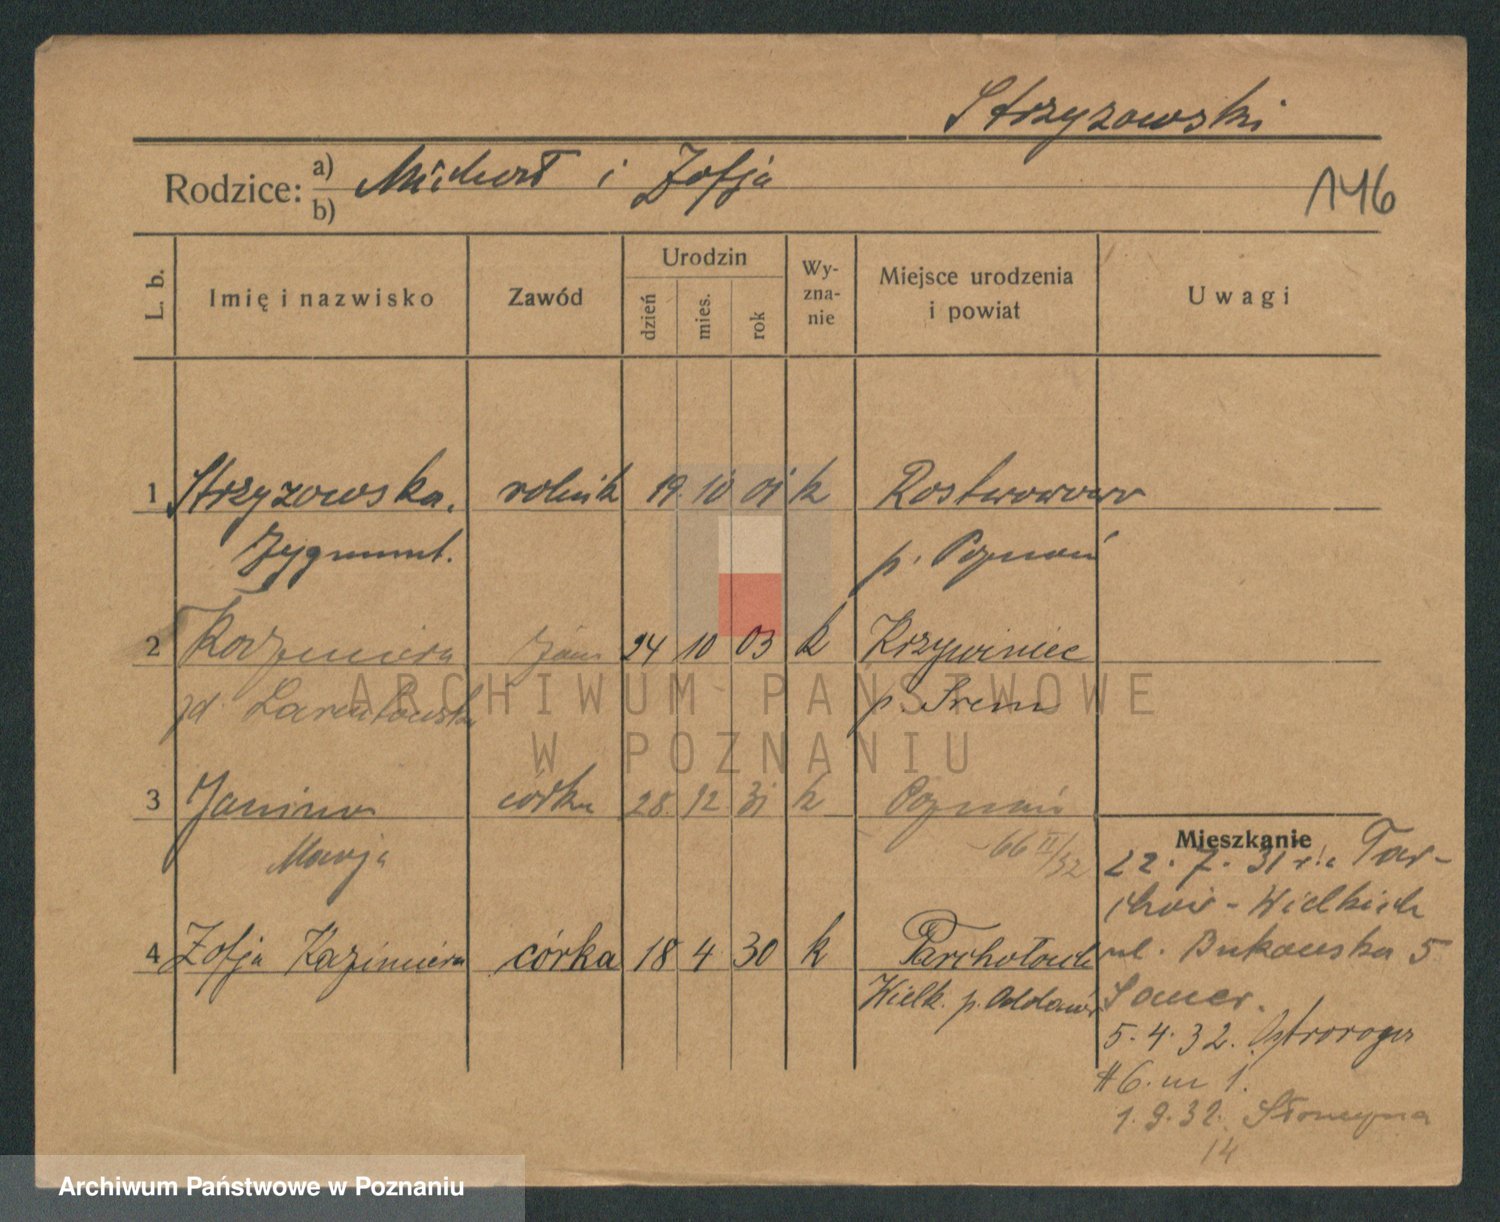 Strzyzowski
Rodzice: a) Michał i Zofja
b)
146
L. b.
Imię i nazwisko
Zawód
Urodzin
dzień
mies.
rok
Wy-
zna-
nie
Miejsce urodzenia
i powiat
Uwagi
1 Strzyzowska. rolnik 19. 10 01 k
Zygmunt. p. Poznań
2 Kazimiera 24 10 03 k Krzywiniec
zd. p. Śrem
ARCHIWUM PAŃSTWOWE
W POZNANIU
3 Janina córka 28. 12 31 k Poznań
Marja 66 II/32
4 Zofja Kazimiera córka 18 4 30 k
Wielk. p.
Mieszkanie
22. 7. 31 r. Tar-
Wielkich
ul. Bukowska 5
5. 4. 32. Ostroroga
#6. m 1.
1. 9. 32.
14
Archiwum Państwowe w Poznaniu